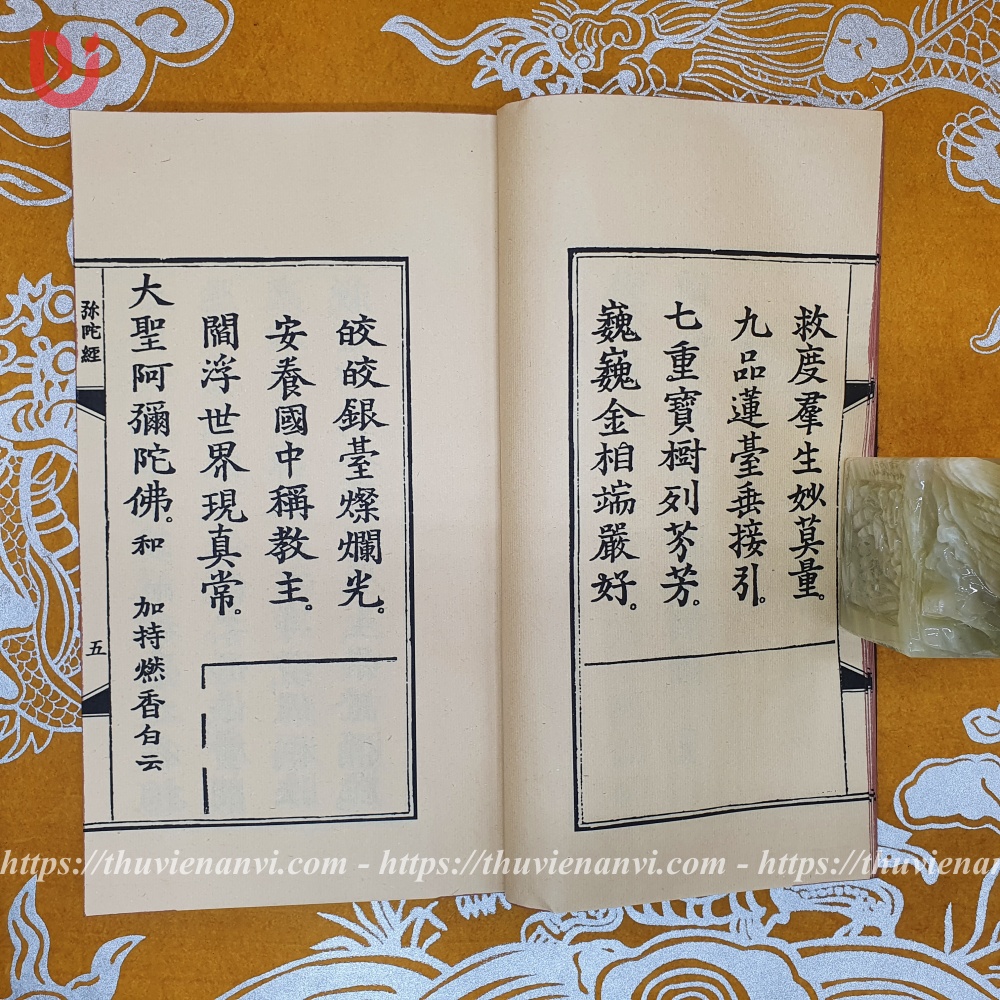 救度羣生妙莫量。
九品蓮臺垂接引。
七重寶樹列芬芳。
巍巍金相端嚴好。
皎皎銀臺燦爛光。
安養國中稱教主。
閻浮世界現真常。
大聖阿彌陀佛。和 加持燃香白云
弥陀經
五
https://thuvienanvi.com - https://thuvienanvi.com - https://thuviena